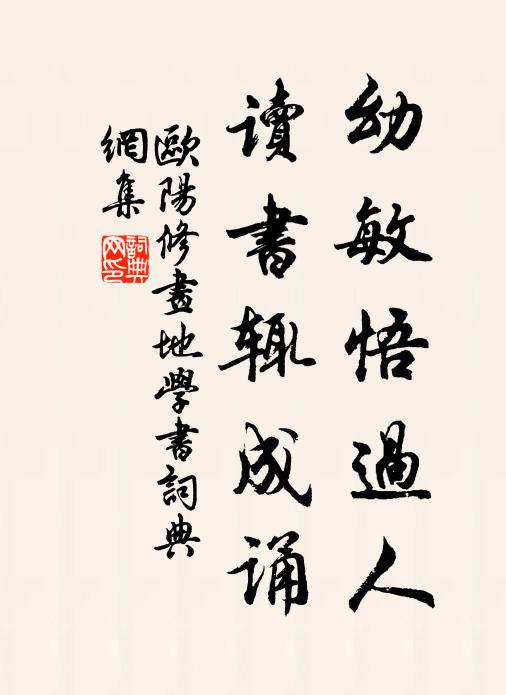 幼敏悟過人
讀書辄成诵
歐陽修畫地學書詞典
網集
詞典
网印